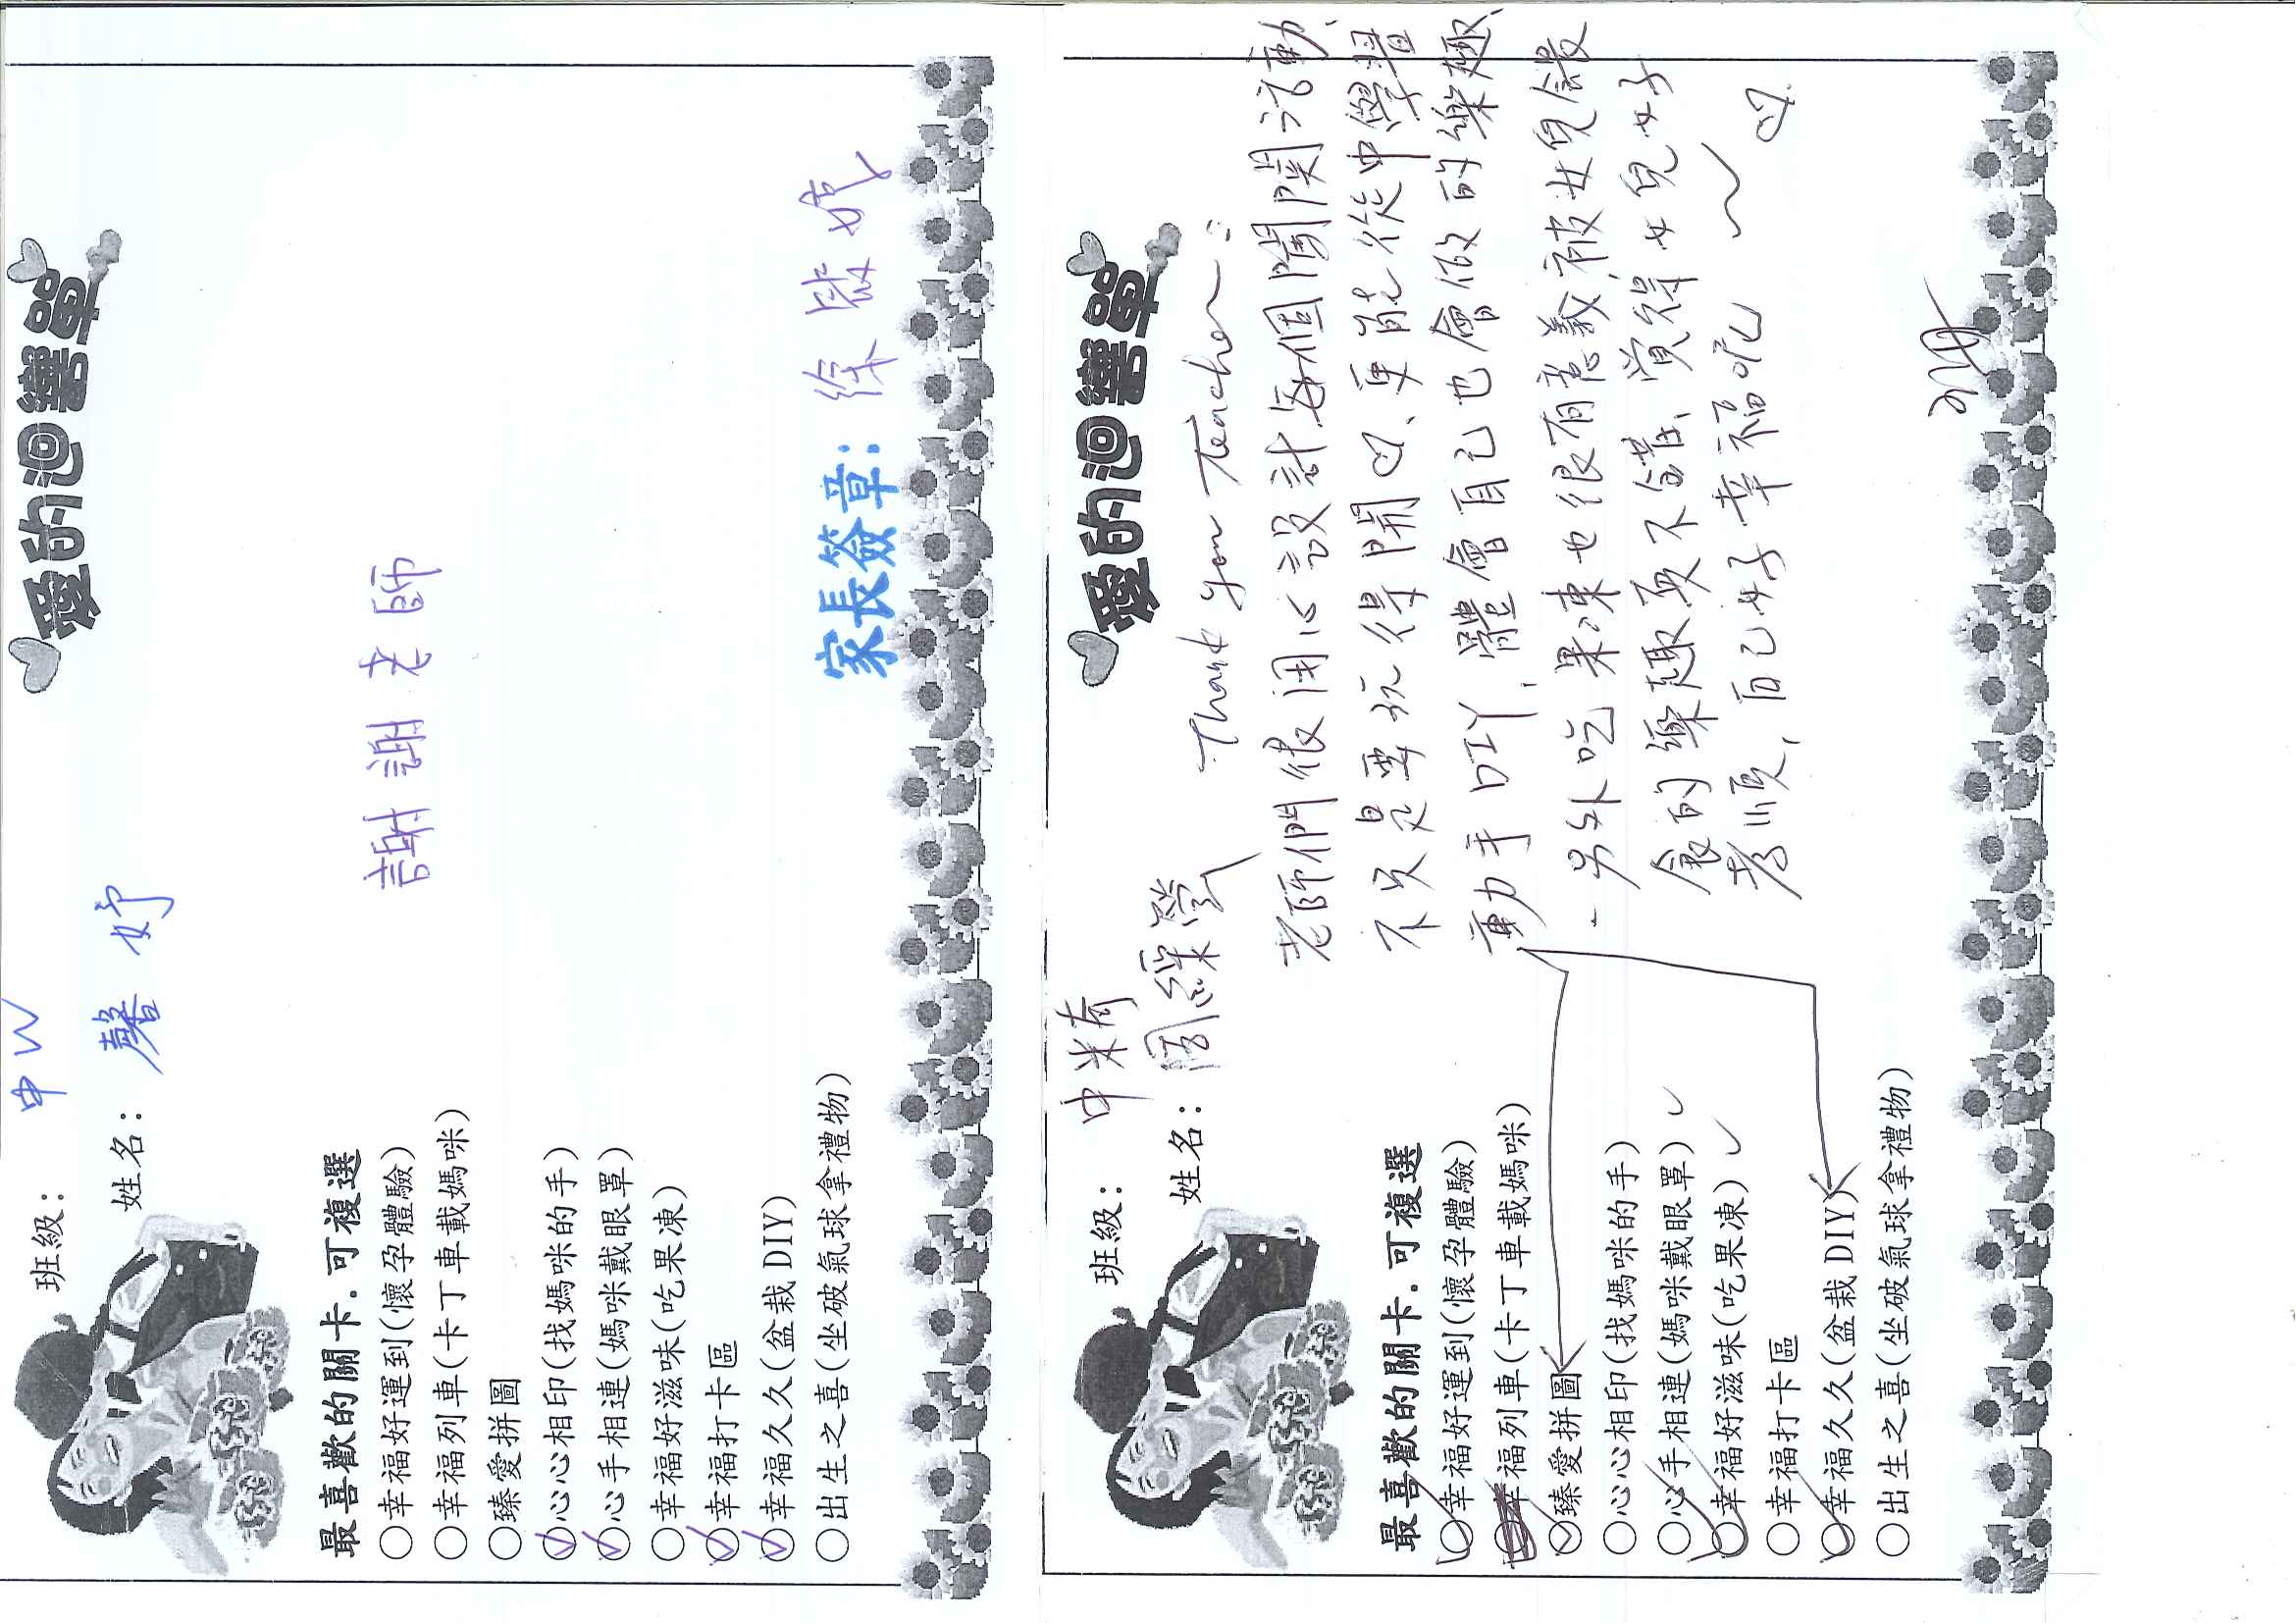 愛的迴響單
班級：中W
姓名：馨妤
最喜歡的關卡.可複選
○幸福好運到(懷孕體驗)
○幸福列車(卡丁車載媽咪)
○臻愛拼圖
○心心相印(找媽咪的手)
○心手相連(媽咪戴眼罩)
○幸福好滋味(吃果凍)
○幸福打卡區
○幸福久久(盆栽DIY)
○出生之喜(坐破氣球拿禮物)
謝謝老師
家長簽章：徐
愛的迴響單
班級：中米奇
姓名：周綵瀅
最喜歡的關卡.可複選
○幸福好運到(懷孕體驗)
○幸福列車(卡丁車載媽咪)
○臻愛拼圖
○心心相印(找媽咪的手)
○心手相連(媽咪戴眼罩)
○幸福好滋味(吃果凍)
○幸福打卡區
○幸福久久(盆栽DIY)
○出生之喜(坐破氣球拿禮物)
Thank you Teacher~:
老師們很用心設計每個闖關活動、
不只是要玩得開心、更能從中學習
動手DIY、體會自己也會做的樂趣、
另外吃果凍也很有意義被女兒餵
食的樂趣真不錯、覺得女兒好
孝順、自己好幸福呢~